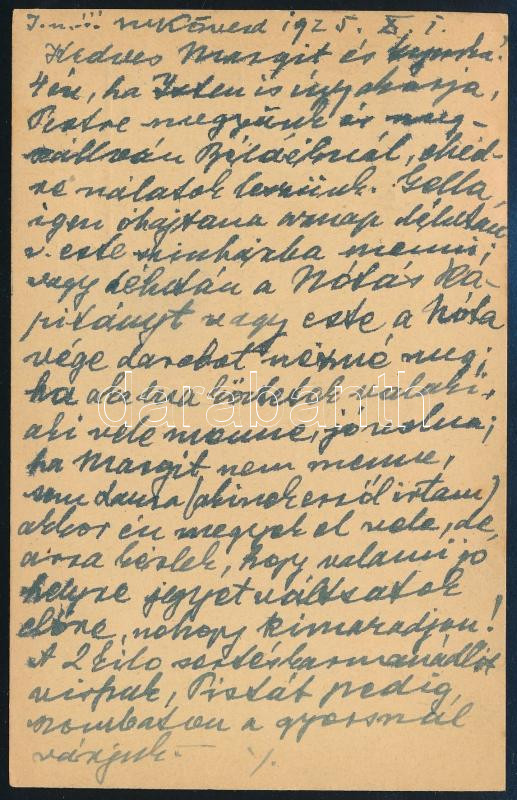 1925. X. 1.
Kedves Margit és
4én, ha Isten is úgy akarja,
Pestre megyünk és meg-
szállván Béláéknál, ebéd-
re nálatok leszünk. Gella,
igen óhajtana aznap délután
v. este szinházba menni;
vagy délután a Nótás Ka-
pitányt vagy este a Nóta
vége darabot nézné meg;
ha akadna köztetek valaki,
aki vele menne, jó volna;
ha Margit nem menne,
sem (akinek erről irtam)
akkor én megyek el vele, de,
arra kérlek, hogy valami jó
helyre jegyet váltsatok
előre, nehogy kimaradjon!
A 2 kilo sertéskarmanádlit
visszük, Pistát pedig,
szombaton a gyorsnál
várjuk. ./.
darabanth